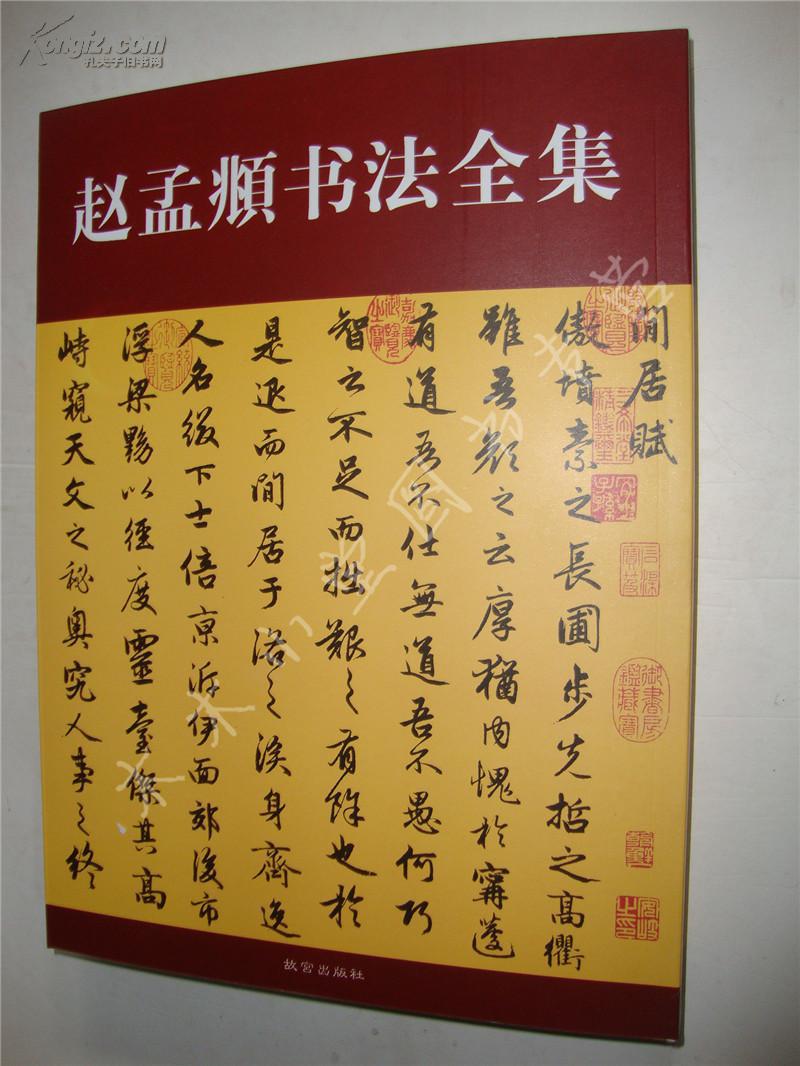 Kongfz.com
孔夫子旧书网
赵孟頫书法全集
閒居賦
傲墳素之長圃步先哲之高衢
雖吾顏之云厚猶内愧於寗蘧
有道吾不仕無道吾不愚何巧
智之不足而拙艱之有餘也於
是退而閒居于洛之涘身齊逸
人名綴下士倍京泝伊面郊後市
浮梁黝以徑度靈臺傑其高
峙窺天文之秘奥究人事之終
嘉慶御覽之寶
御書房鑑藏寶
故宫出版社